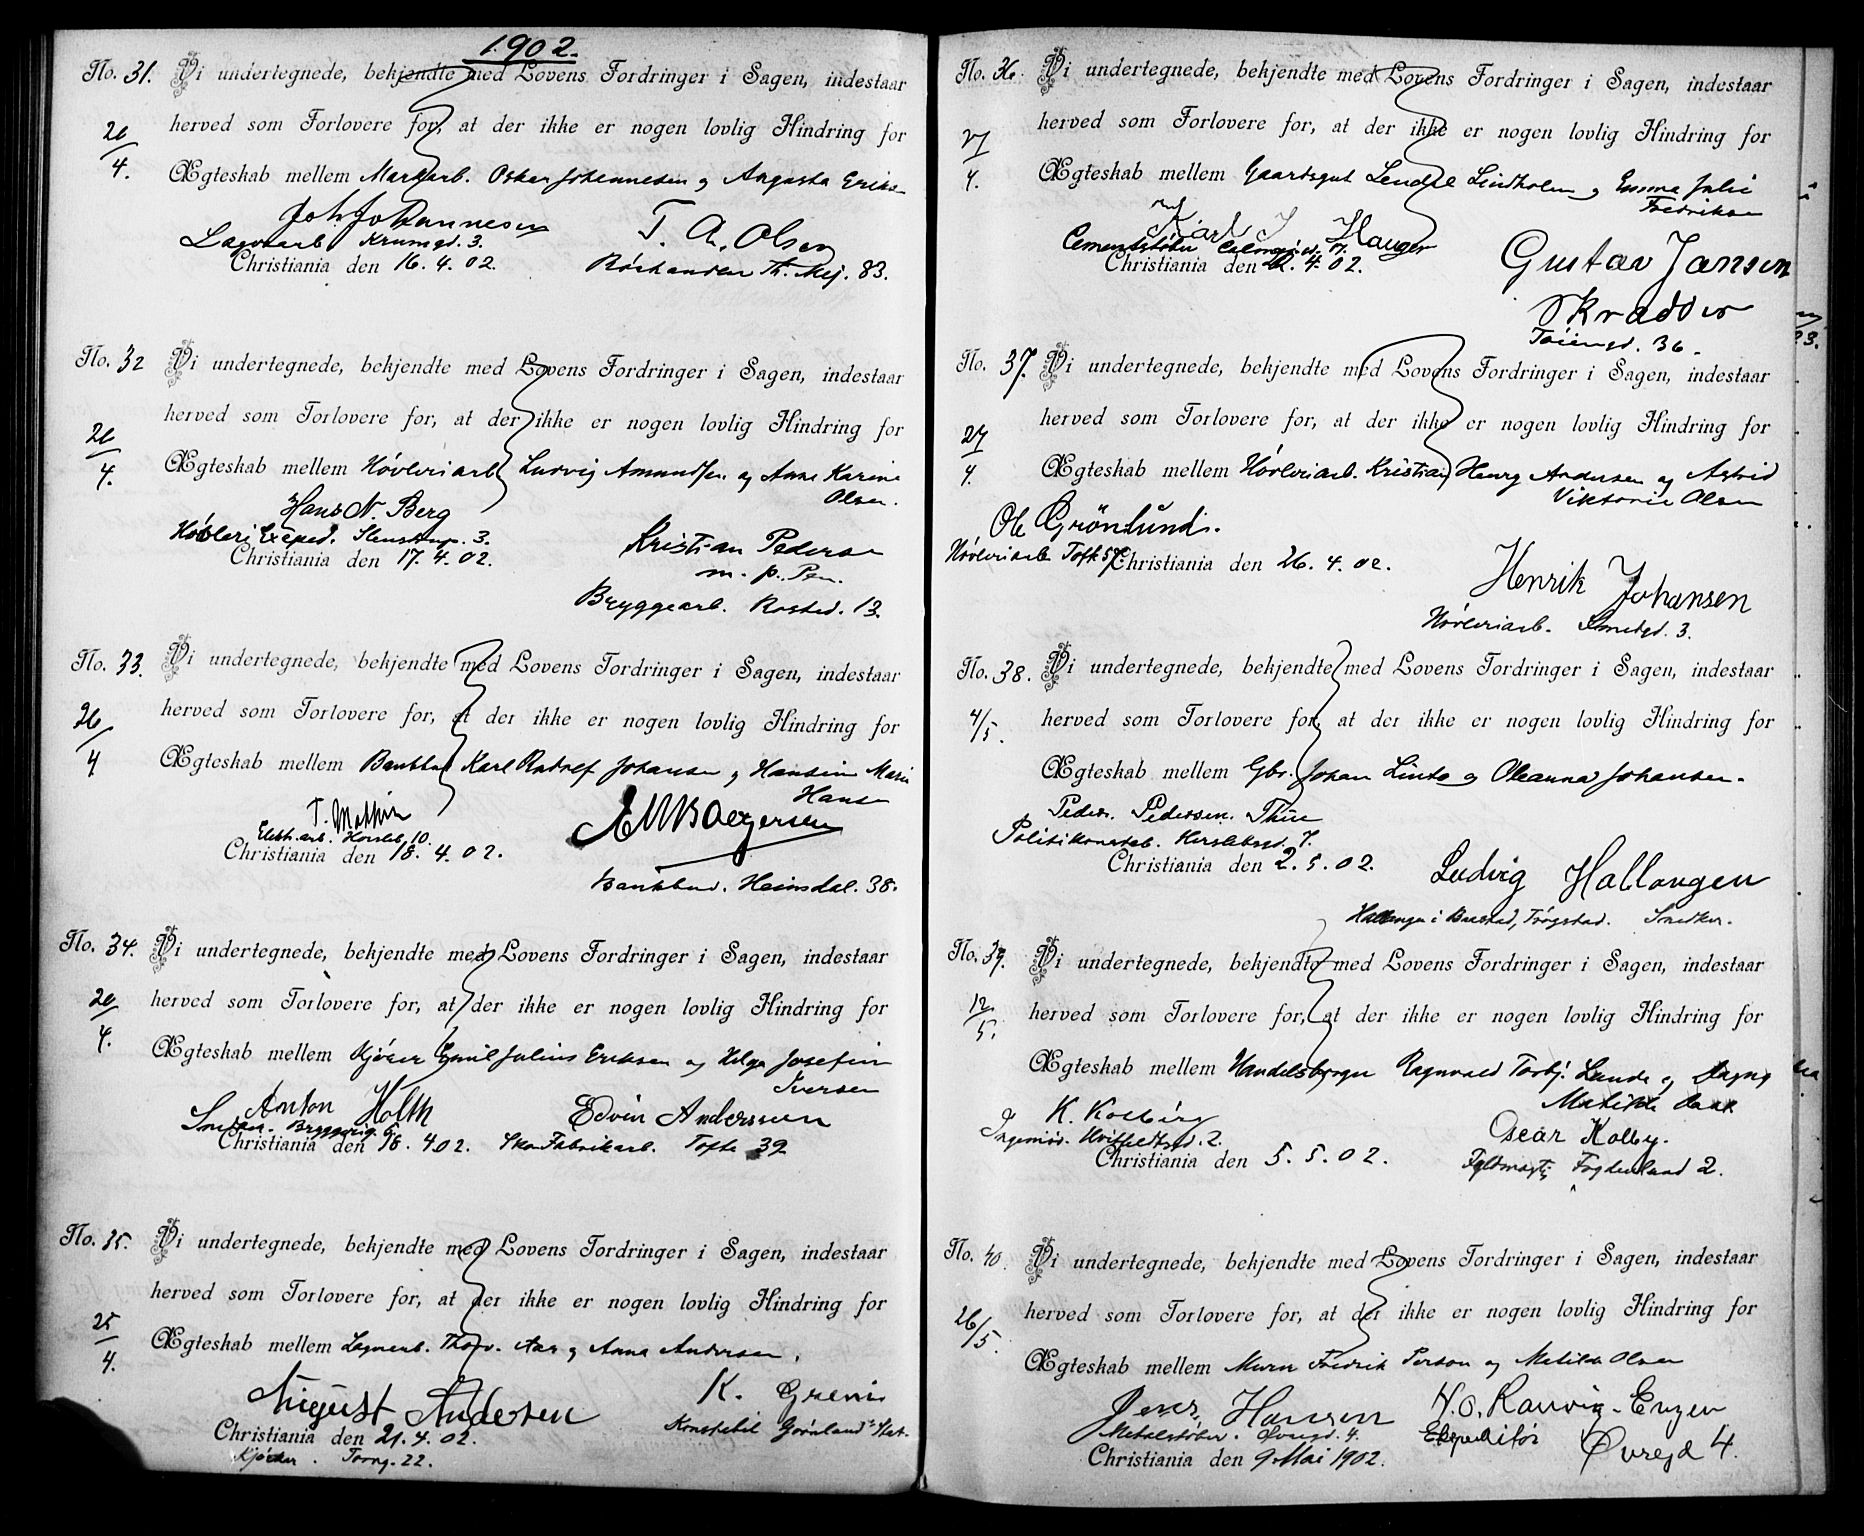 1902.
No. 31. Vi undertegnede, bekjendte med Lovens Fordringer i Sagen, indestaar
herved som Forlovere for, at der ikke er nogen lovlig Hindring for
20/4. Ægteskab mellem Oskar Johannesen og Augusta Eriks
Joh. Johannesen T. A. Olsen
Krumgd. 3.
Christiania den 16.4.02. Th. Mej. 83.
No. 32 Vi undertegnede, bekjendte med Lovens Fordringer i Sagen, indestaar
herved som Forlovere for, at der ikke er nogen lovlig Hindring for
20/4. Ægteskab mellem Høvleriarb. Ludvig Amundsen og Anne Karine
Olsen.
Hans N. Berg
Høvleri Exped. 3. Kristian Pedersen
Christiania den 17.4.02. m. p. Pen.
Bryggearb. Rosted. 13.
No. 33. Vi undertegnede, bekjendte med Lovens Fordringer i Sagen, indestaar
herved som Forlovere for, at der ikke er nogen lovlig Hindring for
26/4 Ægteskab mellem Bankbud Karl Rudolf Johansen og Hansine Marie
Hansen
Elektr.arb. Korsleb. 10.
Christiania den 18.4.02.
Bankbud. Heimdal. 38.
No. 34. Vi undertegnede, bekjendte med Lovens Fordringer i Sagen, indestaar
herved som Forlovere for, at der ikke er nogen lovlig Hindring for
20/4. Ægteskab mellem Kjører Emil Julius Eriksen og Helga Josefine
Iversen
Anton Holth Edvin Anderssen
Snedker. Bryggerig. 6.
Christiania den 18.4 02. Sko Fabrikarb. Tofte 39
No. 35. Vi undertegnede, bekjendte med Lovens Fordringer i Sagen, indestaar
herved som Forlovere for, at der ikke er nogen lovlig Hindring for
25/4. Ægteskab mellem Lagerarb. Thorv. Aas og Anna Andersen.
August Andersen K. Grenis
Christiania den 21.4.02. Konstabel Grønland's Stat.
Kjører. Torvg. 22.
No. 36. Vi undertegnede, bekjendte med Lovens Fordringer i Sagen, indestaar
herved som Forlovere for, at der ikke er nogen lovlig Hindring for
27/4. Ægteskab mellem Gaardsgut Lindholm og Emma Julie
Fredriksen
Karl J Hauger
Cementstøber
Christiania den 22.4.02. Gustav Jansen
Skrædder
Tøiengd. 36.
No. 37. Vi undertegnede, bekjendte med Lovens Fordringer i Sagen, indestaar
herved som Forlovere for, at der ikke er nogen lovlig Hindring for
27/4. Ægteskab mellem Høvleriarb. Kristian Henry Andersen og Astrid
Viktoria Olsen
Ole Grönlund.
Høvleriarb Tofte 57 Christiania den 26.4.02.
Henrik Johansen
Høvleriarb. Smedgd. 3.
No. 38. Vi undertegnede, bekjendte med Lovens Fordringer i Sagen, indestaar
4/5. herved som Forlovere for, at der ikke er nogen lovlig Hindring for
Ægteskab mellem Gbr. Johan Linde og Oleanna Johansen.
Peder. Pederssen. Thue
Politikonstab. Herslebsgd. 7.
Christiania den 2.5.02. Ludvig Hallangen
Hallangen i Baastad, Trøgstad. Snedker.
No. 39. Vi undertegnede, bekjendte med Lovens Fordringer i Sagen, indestaar
12/5. herved som Forlovere for, at der ikke er nogen lovlig Hindring for
Ægteskab mellem Handelsborger Ragnvald Torbj. Lunde og Dagny
Matilde
K. Kolberg Oscar Kolby.
Ingeniør. Hvitfeldtsgd. 2.
Christiania den 5.5.02. 2.
No. 40. Vi undertegnede, bekjendte med Lovens Fordringer i Sagen, indestaar
herved som Forlovere for, at der ikke er nogen lovlig Hindring for
26/5. Ægteskab mellem Murer Fredrik Person og Matilda Olsen
Jens Hansen
Metalstøber. 4. Expeditør Øvregd 4.
Christiania den 9. Mai 1902.